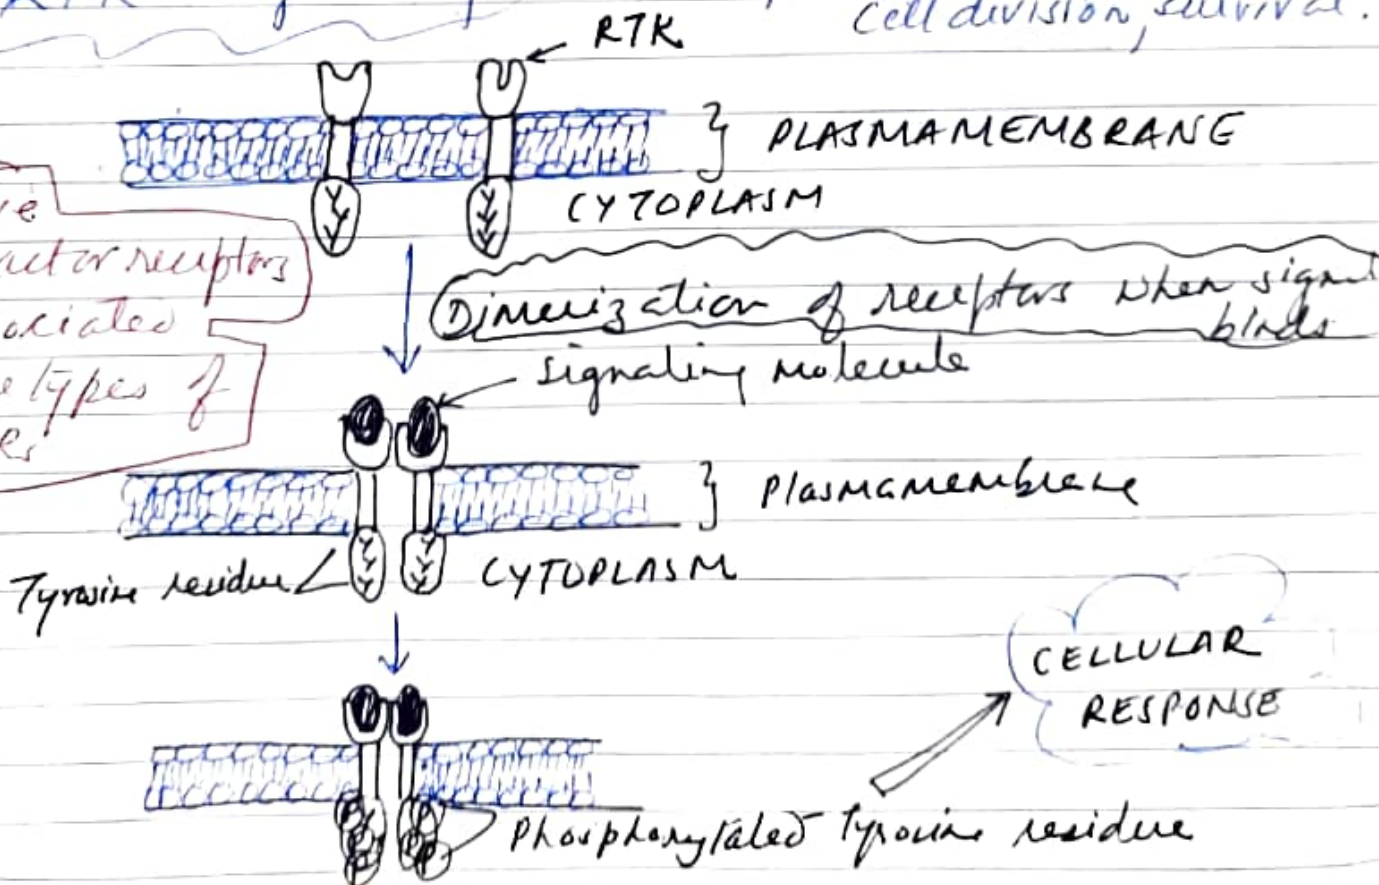 cell division, survival.
RTK
PLASMAMEMBRANE
CYTOPLASM
receptors
Dimerization of receptors when signal
binds
signaling molecule
types of
Plasmamembrane
Tyrosine residue
CYTOPLASM
CELLULAR
RESPONSE
Phosphorylated Tyrosine residue